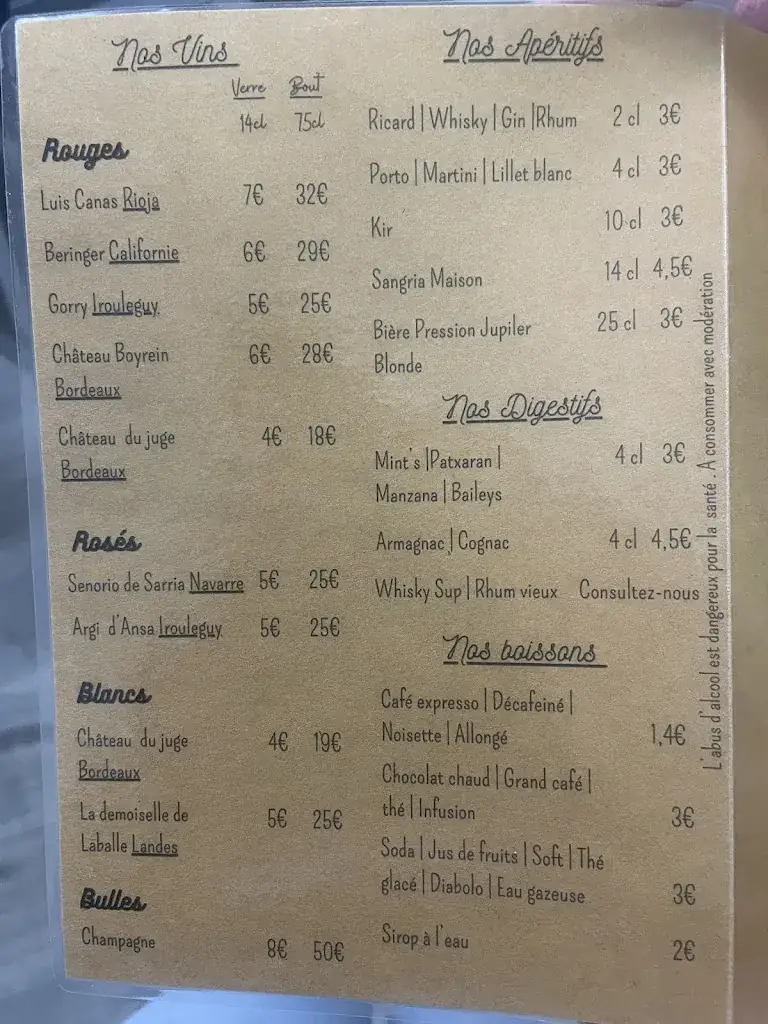 Nos Vins
Verre Bout
14cl 75cl
Rouges
Luis Canas Rioja 7€ 32€
Beringer Californie 6€ 29€
Gorry Irouleguy 5€ 25€
Château Boyrein 6€ 28€
Bordeaux
Château du juge 4€ 18€
Bordeaux
Rosés
Senorio de Sarria Navarre 5€ 25€
Argi d'Ansa Irouleguy 5€ 25€
Blancs
Château du juge 4€ 19€
Bordeaux
La demoiselle de 5€ 25€
Laballe Landes
Bulles
Champagne 8€ 50€
Nos Apéritifs
Ricard | Whisky | Gin | Rhum 2 cl 3€
Porto | Martini | Lillet blanc 4 cl 3€
Kir 10 cl 3€
Sangria Maison 14 cl 4,5€
Bière Pression Jupiler 25 cl 3€
Blonde
Nos Digestifs
Mint's | Patxaran | 4 cl 3€
Manzana | Baileys
Armagnac | Cognac 4 cl 4,5€
Whisky Sup | Rhum vieux Consultez-nous
Nos boissons
Café expresso | Décafeiné |
Noisette | Allongé 1,4€
Chocolat chaud | Grand café |
thé | Infusion 3€
Soda | Jus de fruits | Soft | Thé
glacé | Diabolo | Eau gazeuse 3€
Sirop à l'eau 2€
L'abus d'alcool est dangereux pour la santé . A consommer avec modération